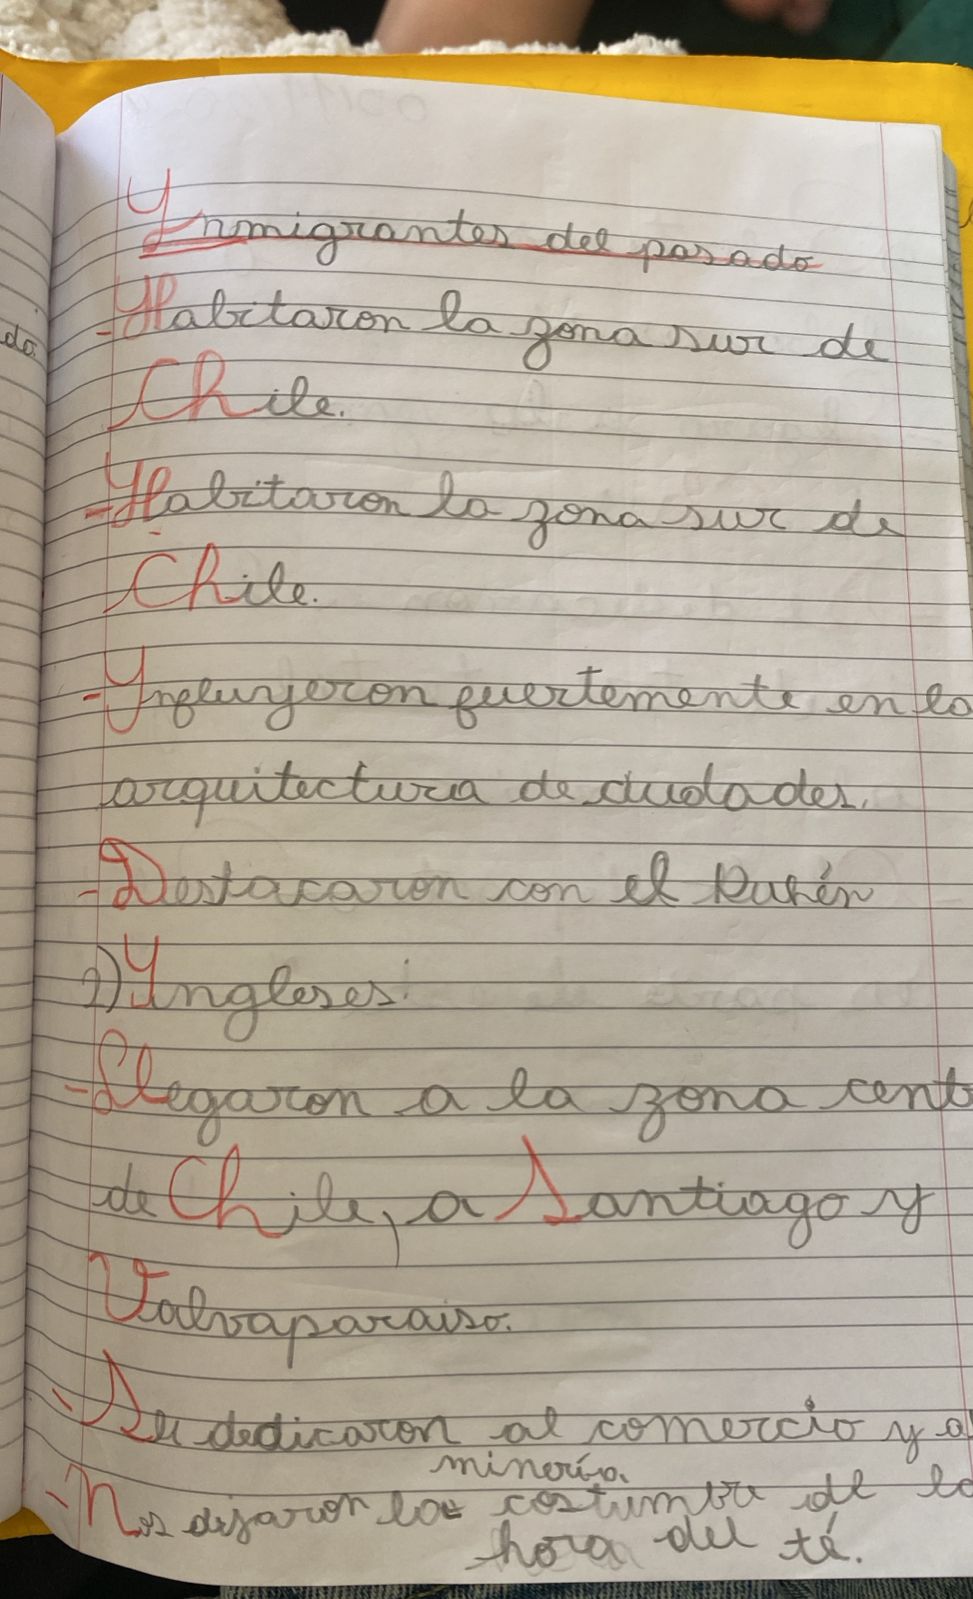 do.
Inmigrantes del pasado
-Habitaron la zona sur de
Chile.
-Habitaron la zona sur de
Chile.
-Influyeron fuertemente en la
arquitectura de ciudades.
-Destacaron con el Kuchén
2) Ingleses:
-Llegaron a la zona cent
de Chile, a Santiago y
Valvaparaiso.
-Se dedicaron al comercio y a
minería.
-Nos dejaron la costumbre de la
hora del té.